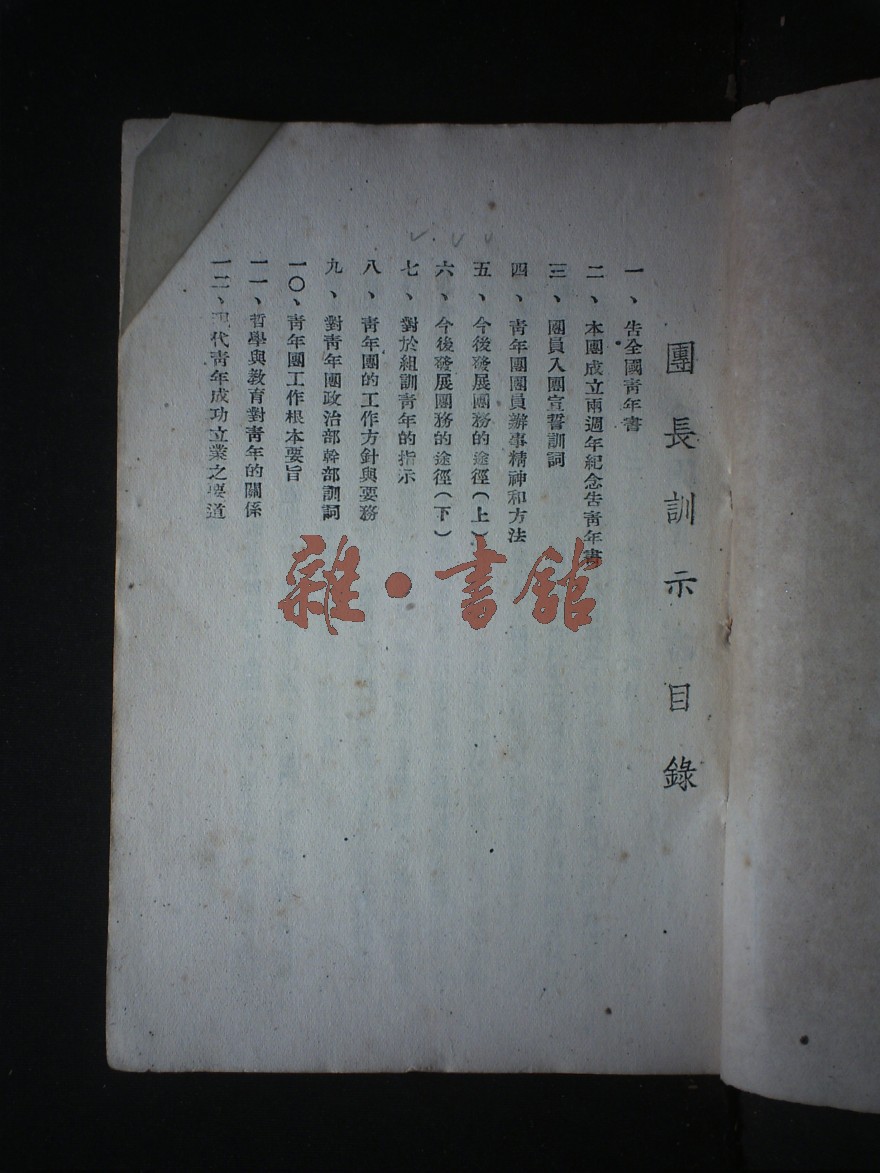 團長訓示目錄
一、告全國青年書
二、本團成立兩週年紀念告青年書
三、團員入團宣誓訓詞
四、青年團團員辦事精神和方法
五、今後發展團務的途徑(上)
六、今後發展團務的途徑(下)
七、對於組訓青年的指示
八、青年團的工作方針與要務
九、對青年團政治部幹部訓詞
一〇、青年團工作根本要旨
一一、哲學與教育對青年的關係
一二、現代青年成功立業之要道
雜·書館